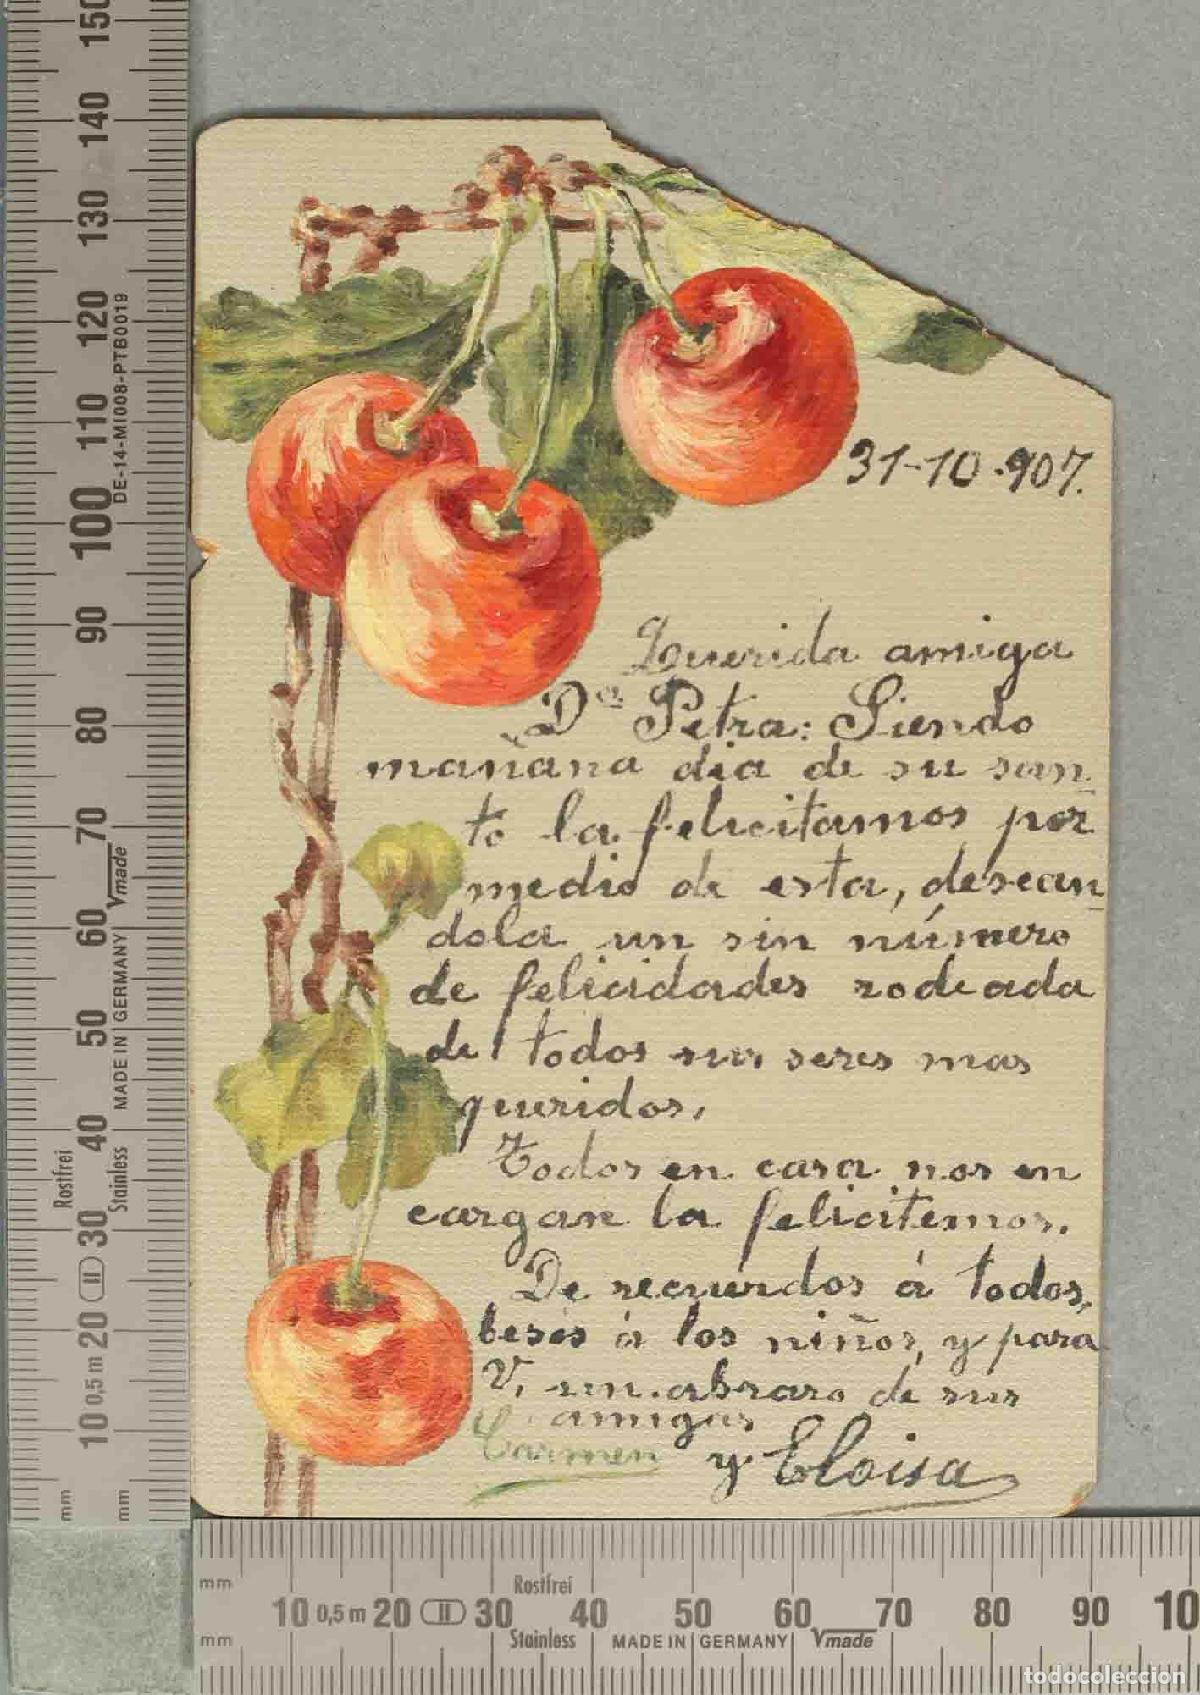 31-10-907.
Querida amiga
Dª Petra: Siendo
mañana dia de su san-
to la felicitamos por
medio de esta, desean-
dola un sin número
de felicidades rodeada
de todos sus seres mas
queridos,
Todos en casa nos en
cargan la felicitemos.
De recuerdos á todos,
besos á los niños, y para
V, un abrazo de sus
amigas
Carmen y Eloisa
150
140
130
120
110
100
90
80
70
60
50
40
30
20
10 0,5 m
DE-14-MI008-PTB0019
Vmade
MADE IN GERMANY
Rostfrei
Stainless
II
mm
mm
mm
Rostfrei
10 0,5 m 20 II 30 40 50 60 70 80 90 10
mm Stainless MADE IN GERMANY Vmade
todocoleccion